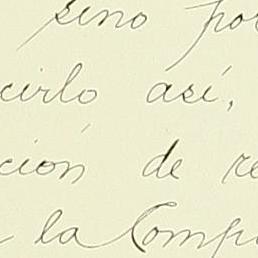 sino por
cirlo así,
ción de re
la Comp